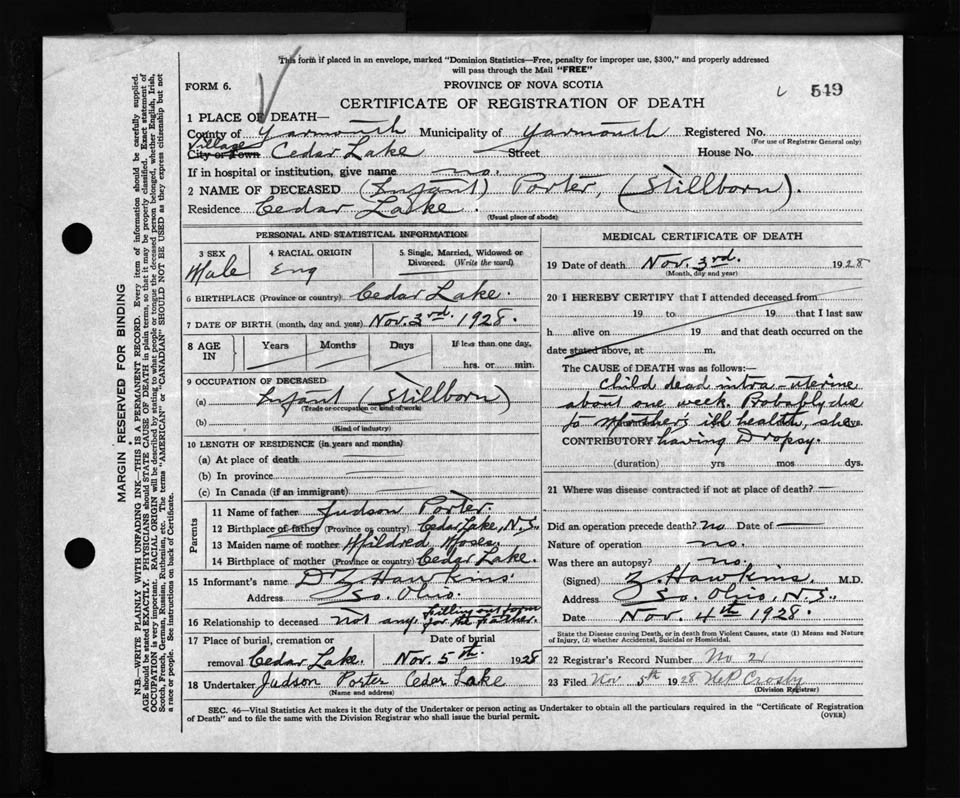 This form if placed in an envelope, marked "Dominion Statistics—Free, penalty for improper use, $300," and properly addressed
will pass through the Mail "FREE"
FORM 6.
PROVINCE OF NOVA SCOTIA
549
CERTIFICATE OF REGISTRATION OF DEATH
1 PLACE OF DEATH—
County of Yarmouth Municipality of Yarmouth Registered No.
(For use of Registrar General only)
Village
City or Town Cedar Lake Street House No.
If in hospital or institution, give name no.
2 NAME OF DECEASED (Infant) Porter, (Stillborn).
Residence Cedar Lake.
(Usual place of abode)
PERSONAL AND STATISTICAL INFORMATION
3 SEX 4 RACIAL ORIGIN 5 Single, Married, Widowed or
Divorced. (Write the word)
Male Eng
6 BIRTHPLACE (Province or country) Cedar Lake.
7 DATE OF BIRTH (month, day and year) Nov. 3rd 1928.
8 AGE IN Years Months Days If less than one day,
hrs. or min.
9 OCCUPATION OF DECEASED
(a) Infant (Stillborn)
(Trade or occupation or kind of work)
(b)
(Kind of industry)
10 LENGTH OF RESIDENCE (in years and months)
(a) At place of death
(b) In province
(c) In Canada (if an immigrant)
Parents
11 Name of father Judson Porter.
12 Birthplace of father (Province or country) Cedar Lake, N.S.
13 Maiden name of mother Mildred Moses.
14 Birthplace of mother (Province or country) Cedar Lake.
15 Informant's name Dr Z Hawkins
Address So. Ohio.
16 Relationship to deceased not any. filling out form
for the father.
17 Place of burial, cremation or Date of burial
removal Cedar Lake. Nov. 5th. 1928
18 Undertaker Judson Porter Cedar Lake
(Name and address)
MEDICAL CERTIFICATE OF DEATH
19 Date of death Nov. 3rd. 1928
(Month, day and year)
20 I HEREBY CERTIFY that I attended deceased from
19 to 19 that I last saw
h alive on 19 and that death occurred on the
date stated above, at m.
The CAUSE OF DEATH was as follows:—
Child dead intra-uterine
about one week. Probably due
to Mothers ill health, she
CONTRIBUTORY having Dropsy.
(duration) yrs mos dys.
21 Where was disease contracted if not at place of death?
Did an operation precede death? no Date of
Nature of operation no.
Was there an autopsy? no.
(Signed) Z. Hawkins. M.D.
Address So. Ohio, N.S.
Date Nov. 4th 1928.
State the Disease Causing Death, or in death from Violent Causes, state (1) Means and Nature
of Injury, (2) whether Accidental, Suicidal or Homicidal.
22 Registrar's Record Number No 2
23 Filed Nov 5th 1928 Crosby
(Division Registrar)
SEC. 46—Vital Statistics Act makes it the duty of the Undertaker or person acting as Undertaker to obtain all the particulars required in the "Certificate of Registration
of Death" and to file the same with the Division Registrar who shall issue the burial permit.
(OVER)
MARGIN RESERVED FOR BINDING
N.B—WRITE PLAINLY WITH UNFADING INK—THIS IS A PERMANENT RECORD. Every item of information should be carefully supplied.
AGE should be stated EXACTLY. PHYSICIANS should STATE CAUSE OF DEATH in plain terms, so that it may be properly classified. Exact statement of
OCCUPATION is very important. RACIAL ORIGIN will be described by stating to what people or tongue the deceased person belonged, whether English, Irish,
Scotch, French, German, Russian, Ruthenian, etc. The terms "AMERICAN" or "CANADIAN" SHOULD NOT BE USED as they express citizenship but not
a race or people. See instructions on back of Certificate.